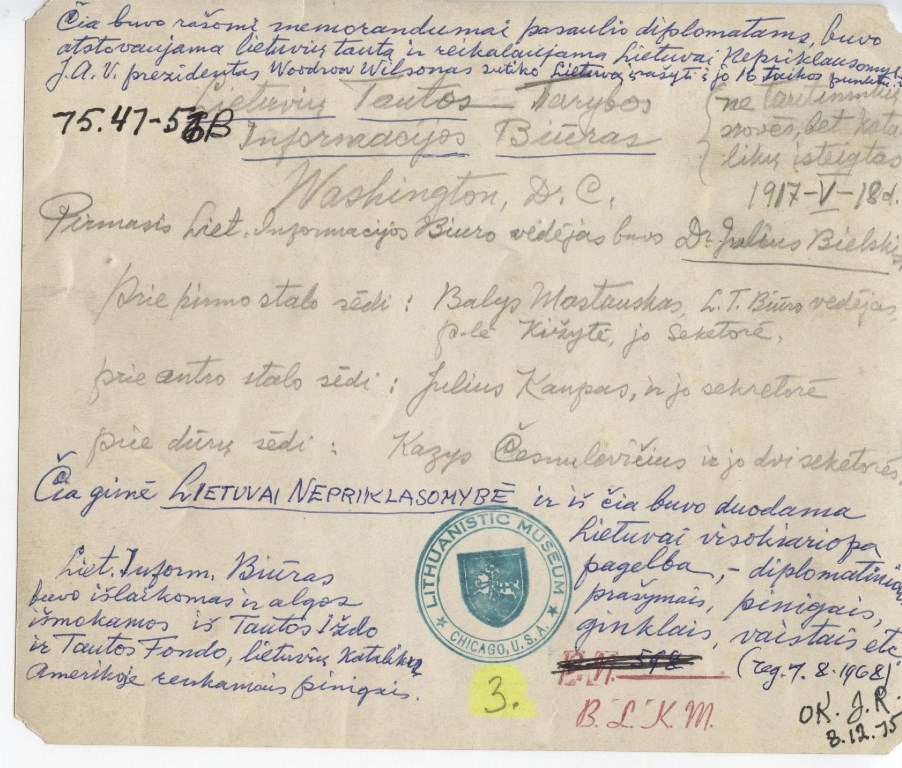 Čia buvo rašomi memorandumai pasaulio diplomatams, buvo
atstovaujama lietuvių tautą ir reikalaujama Lietuvai Nepriklausomyb
J.A.V. prezidentas Woodrow Wilsonas sutiko Lietuvą įrašyti į jo 16 taikos punktų
Lietuvių Tautos Tarybos
75.47-5 B
Informacijos Biūras
ne tautininkų
srovės, bet kata
likų įsteigtas
1917-V-18d.
Washington, D.C.
Pirmasis Liet. Informacijos Biuro vedėjas buvo Dr Julius Bielskis
prie pirmo stalo sėdi : Balys Mastauskas, L.T. Biūro vedėjas,
p-lė Kižytė, jo Seketorė.
prie antro stalo sėdi : Julius Kaupas, ir jo sekretorė
prie dūrų sėdi : Kazys Česnulevičius ir jo dvi seketorės,
Čia gimė LIETUVAI NEPRIKLASOMYBĖ ir iš čia buvo duodama
Lietuvai visokiariopa
pagelba,- diplomatiniais
prašymais, pinigais,
ginklais, vaistais etc
(reg. 7.8-1968)
Liet. Inform. Biūras
buvo išlaikomas ir algos
išmokamos iš Tautos Iždo
ir Tautos Fondo, lietuvių Katalikų
Amerikoje renkamais pinigais.
LITHUANISTIC MUSEUM
CHICAGO, U.S.A.
3.
B.L.K.M.
OK. J.R.
8.12.75